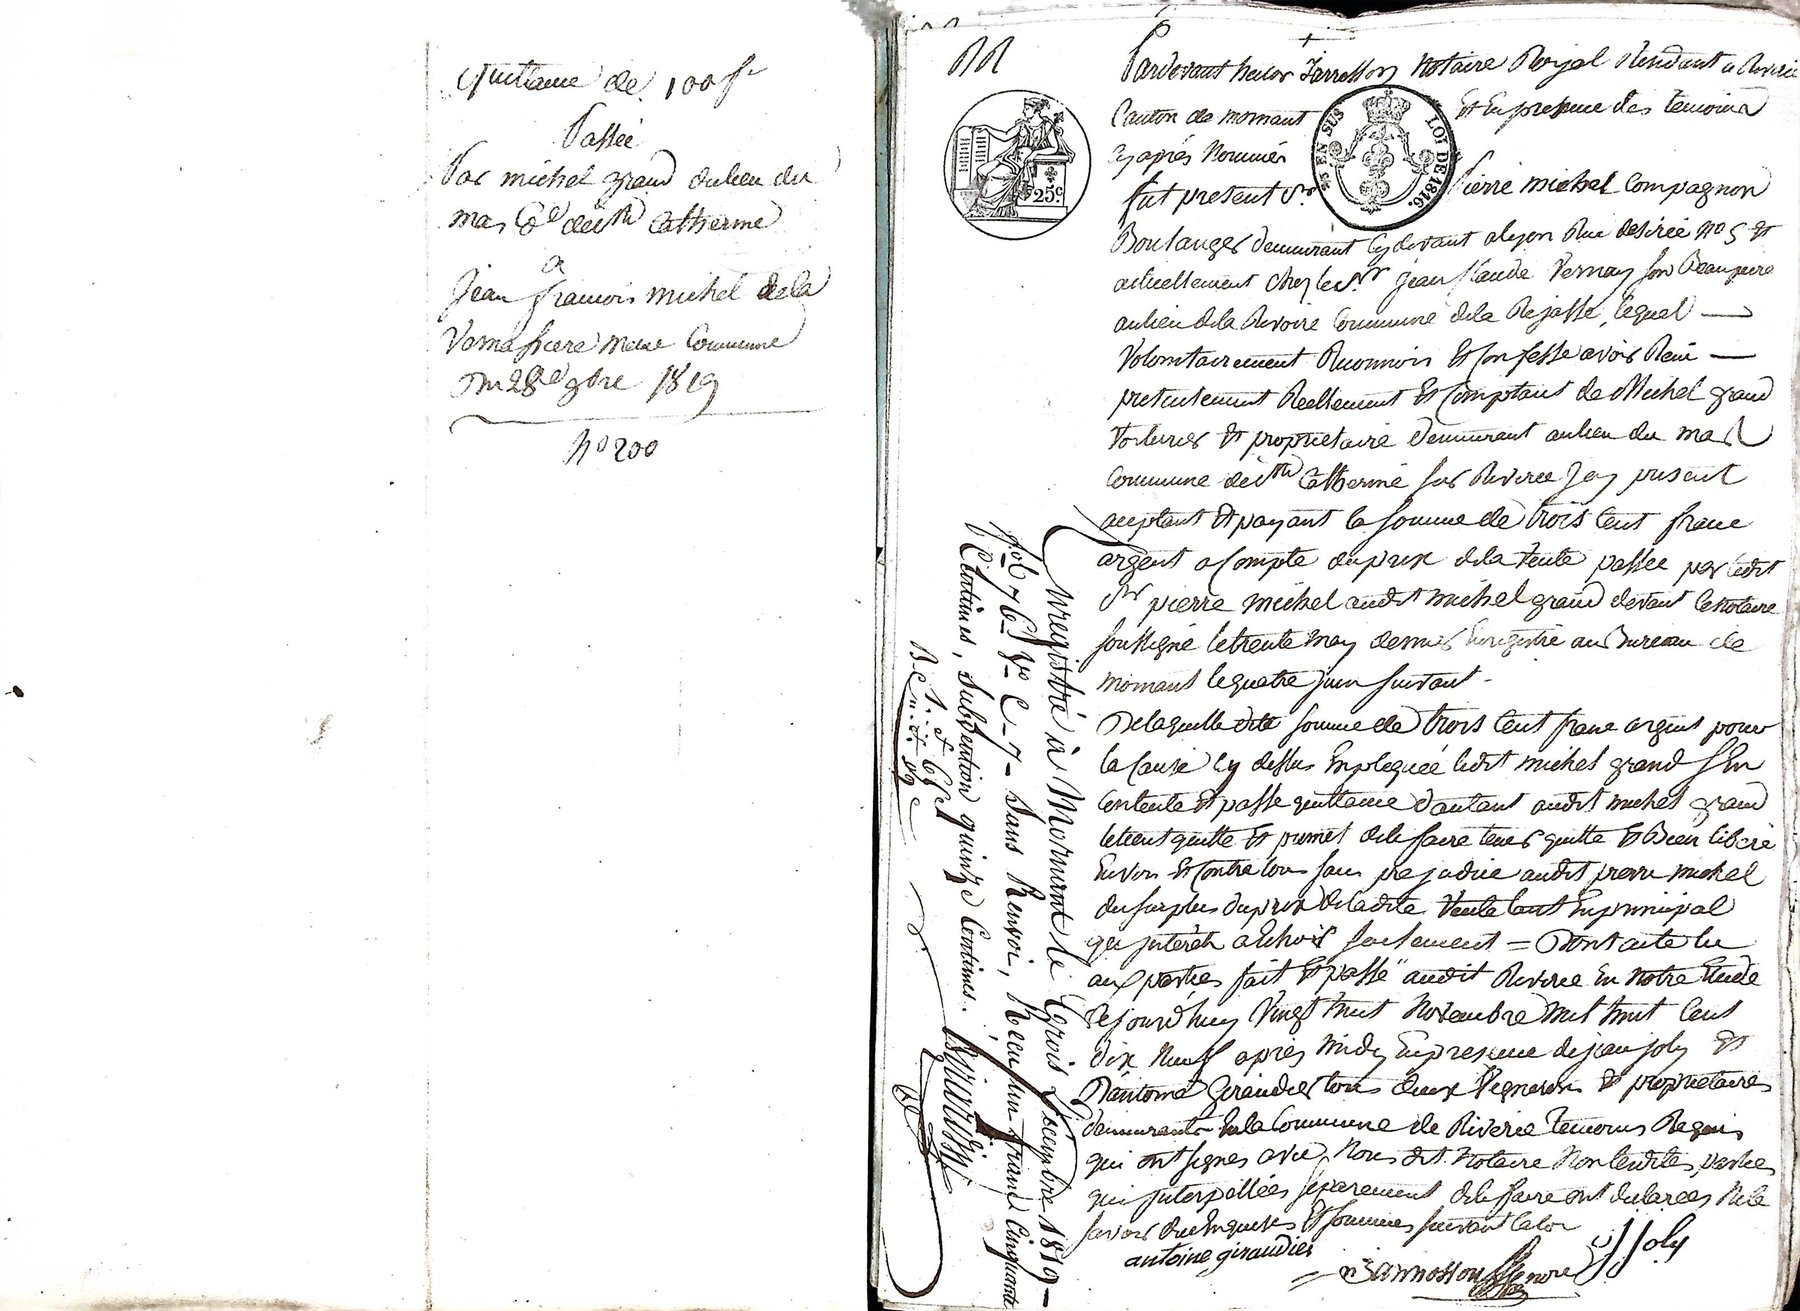 quittance de 100 f.
Passée
Par michel grand du lieu du
mas Cne de Ste Catherine
a
Jean francois michel de la
même Commune
Du 28e 9bre 1819
No 200
Pardevant notaire Royal Résidant a Riverie
Canton de mornant Et En presence des temoins
Cy après Nommés
fut present Sr Pierre michel Compagnon
Boulanger demeurant Cy devant a lyon Rue desirée No 5 et
actuellement chez le Sr jean Claude Vernay son Beaupere
au lieu de la Rivoire Commune de la Rajasse, lequel
Volontairement Reconnoit Et Confesse avoir Reçu
presentement Reellement Et Comptant de Michel grand
Voiturier et proprietaire demeurant au lieu du mas
Commune de Ste Catherine sur Riverie Icy present
acceptant et payant la somme de trois Cent franc
argent a Compte du prix de la Vente passée par ledit
Sr pierre michel audit michel grand devant le Notaire
soussigné le trente may dernier Enregistré au Bureau de
mornant le quatre juin suivant
De laquelle dite somme de trois Cent franc argent pour
la Cause Cy dessus Expliquée ledit michel grand s'En
Contente et passe quittance d'autant audit michel grand
le tient quitte et promet de le faire tenir quitte et Bien libéré
Envers Et Contre tous sans prejudice audit pierre michel
du surplus du prix de ladite Vente tant En principal
qu'interêt à Echoir seulement = Dont acte lu
aux parties fait Et passé audit Riverie En notre Etude
Cejourd'huy Vingt huit Novembre Mil huit Cent
Dix Neuf après midy En presence de jean joly Et
D'antoine Giraudier tous deux Vignerons et proprietaires
demeurants En la Commune de Riverie temoins Requis
qui ont signés avec Nous dit Notaire Non lesdites parties
qui Interpellées separement de le faire ont declarées Ne le
savoir de ce Enquises Et sommées suivant la loi
antoine giraudier
JJoly
25c.
EN SUS
LOI DE 1816.
Enregistré à Mornant le trois Décembre 1819
fol 76 Vo C. 7 Sans Renvoi, Reçu un franc Cinquante
Centimes, subvention quinze Centimes.
1. f. 65 c